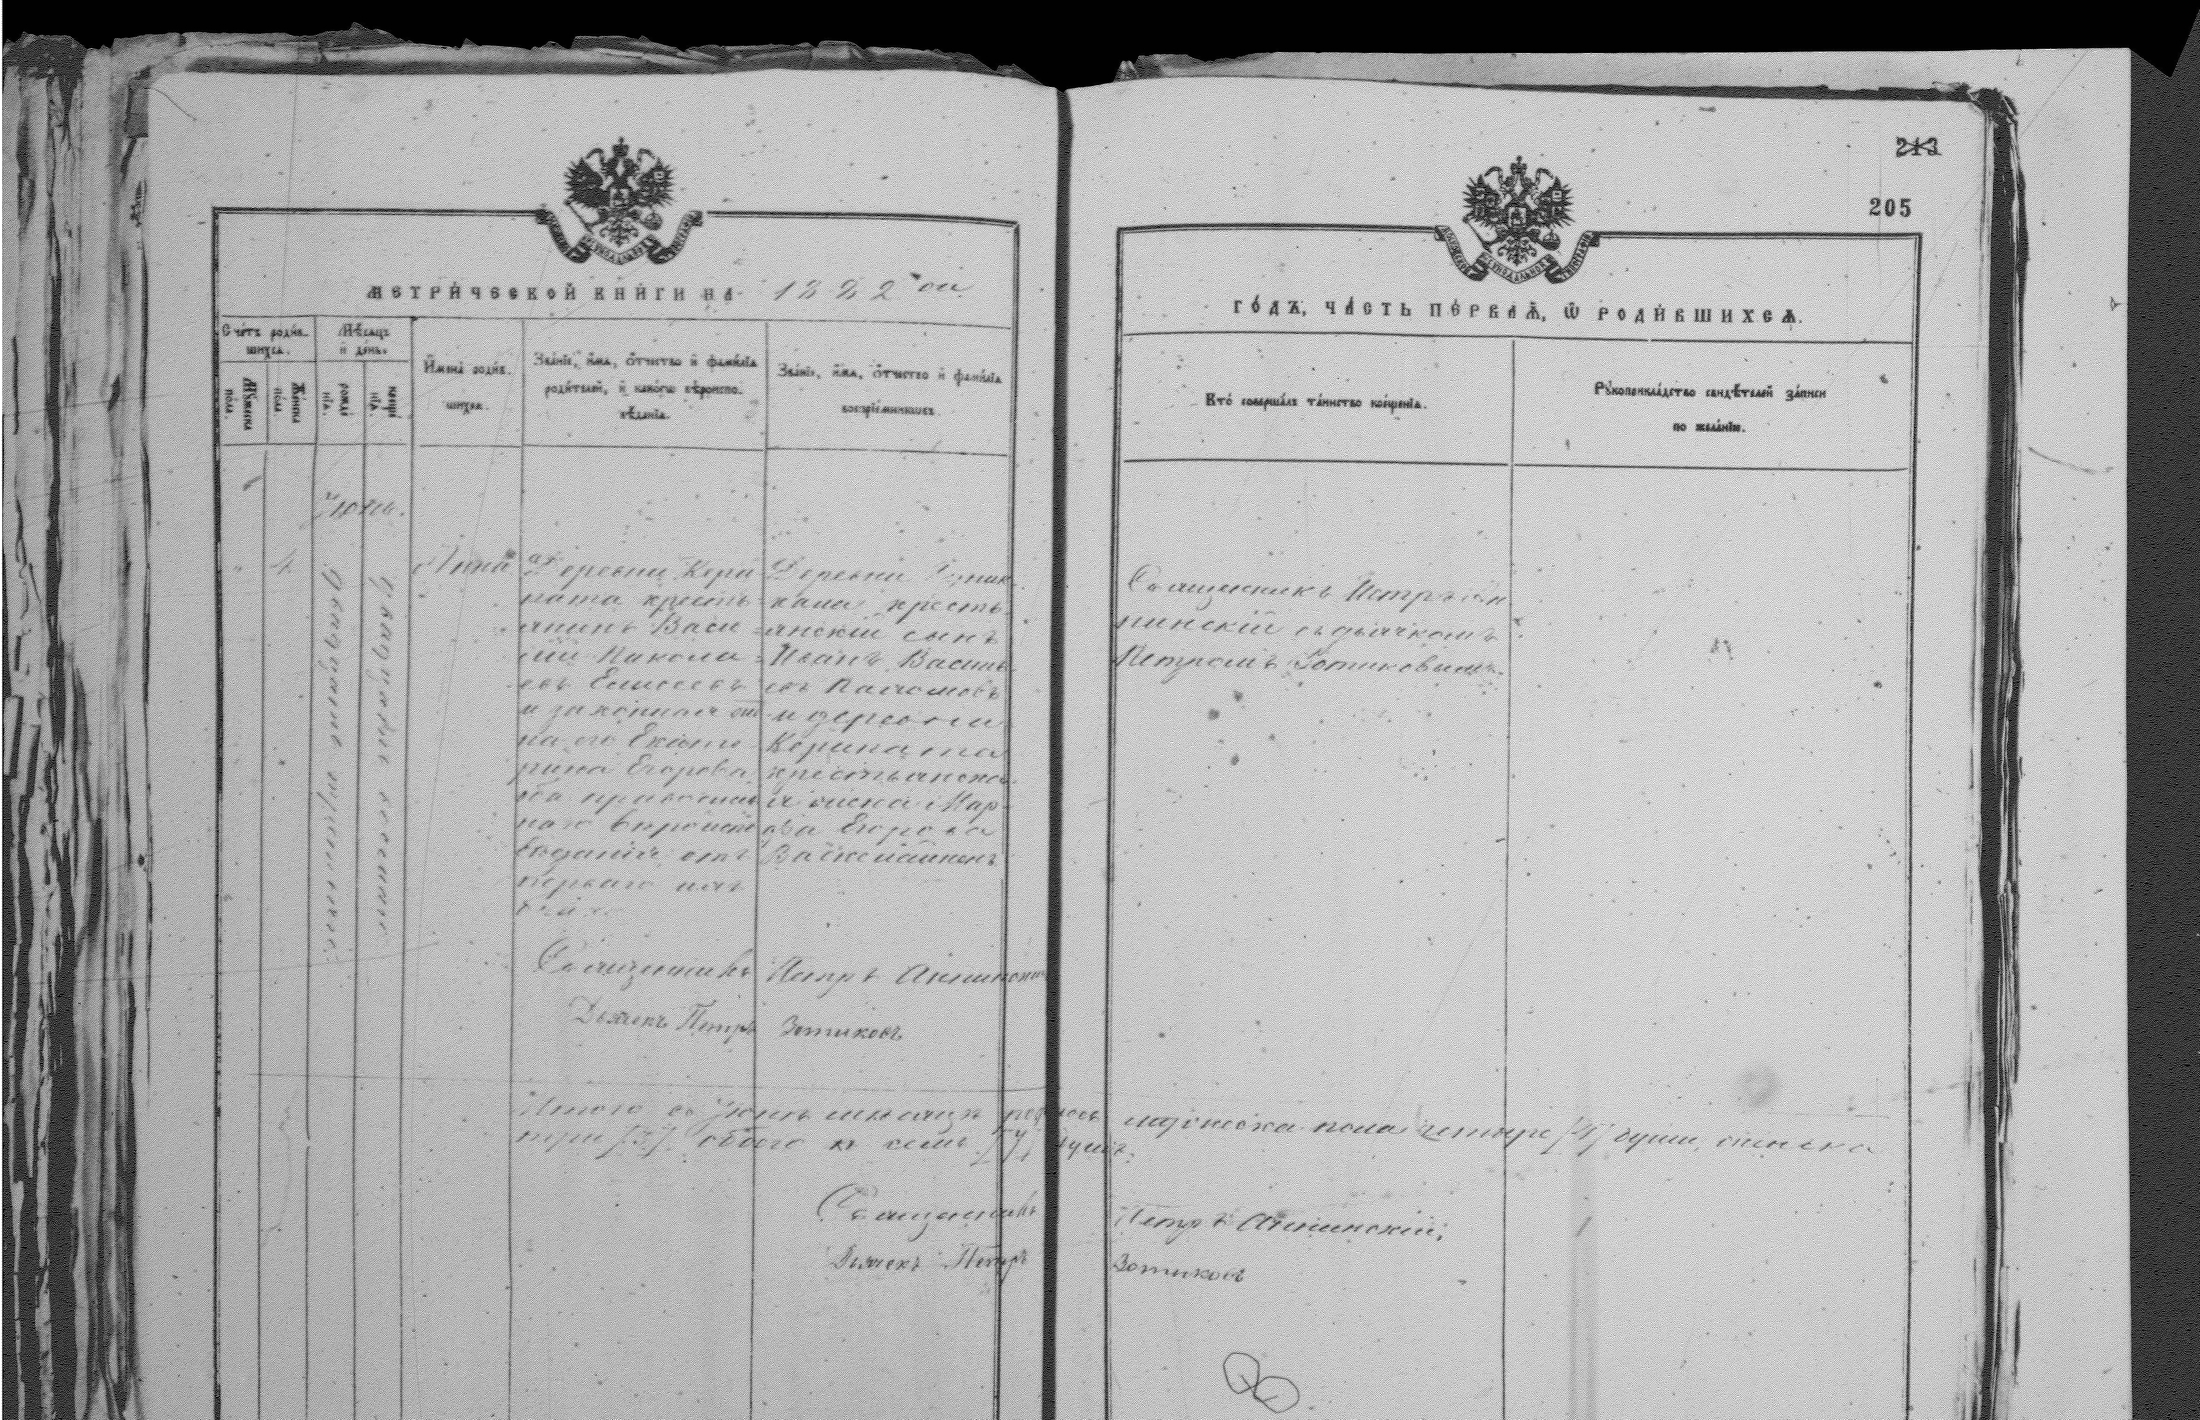 213
205
МЕТРИ́ЧЕСКОЙ КНИ́ГИ НА 1882 ой
ГО́ДЪ, ЧА́СТЬ ПЕ́РВАѦ, Ѿ РОДИ́ВШИХСѦ.
Сче́тъ роди́в-
шихсѧ.
Мѣ́сѧцъ
и҆ де́нь.
Мꙋ́жеска
по́ла
Же́нска
по́ла
рожде́
нїѧ.
креще́
нїѧ.
И҆мена̀ роди́в-
шихсѧ.
Зва́нїе, и҆́мѧ, ѻ҆́тчество и҆ фами́лїѧ
роди́телей, и҆ како́гѡ вѣроиспо-
вѣ́данїѧ.
Зва́нїе, и҆́мѧ, ѻ҆́тчество и҆ фами́лїѧ
воспрїе́мниковъ.
Кто̀ соверша́лъ та́инство креще́нїѧ.
Рꙋкоприкла́дство свидѣ́телей за́писи
по жела́нїю.
Іюнь.
двадцать третьяго
двадцать восьмаго
Анна
Деревни Кери
ната кресть
янинъ Васи
лій Никола
евъ Елисеевъ
и законная же
на его Екате
рина Егорова,
оба православ
наго вѣроиспо
вѣданія отъ
перваго
брака
Деревни
кресть
янскій сынъ
Иванъ Василь
евъ Пахомовъ
и деревни
Керината
крестьянска
я жена Мар
фа Егорова
Священникъ Петръ Ан
нинскій съ дьячкомъ
Петромъ Зотиковымъ.
Священникъ Петръ Аннинскій
Дьячекъ Петръ Зотиковъ
Итого въ Іюнѣ мѣсяцѣ родилось мужеска пола четыре [4] души, женска
три [3], обоего же семь [7] душъ.
Священникъ Петръ Аннинскій,
Дьячекъ Петръ Зотиковъ